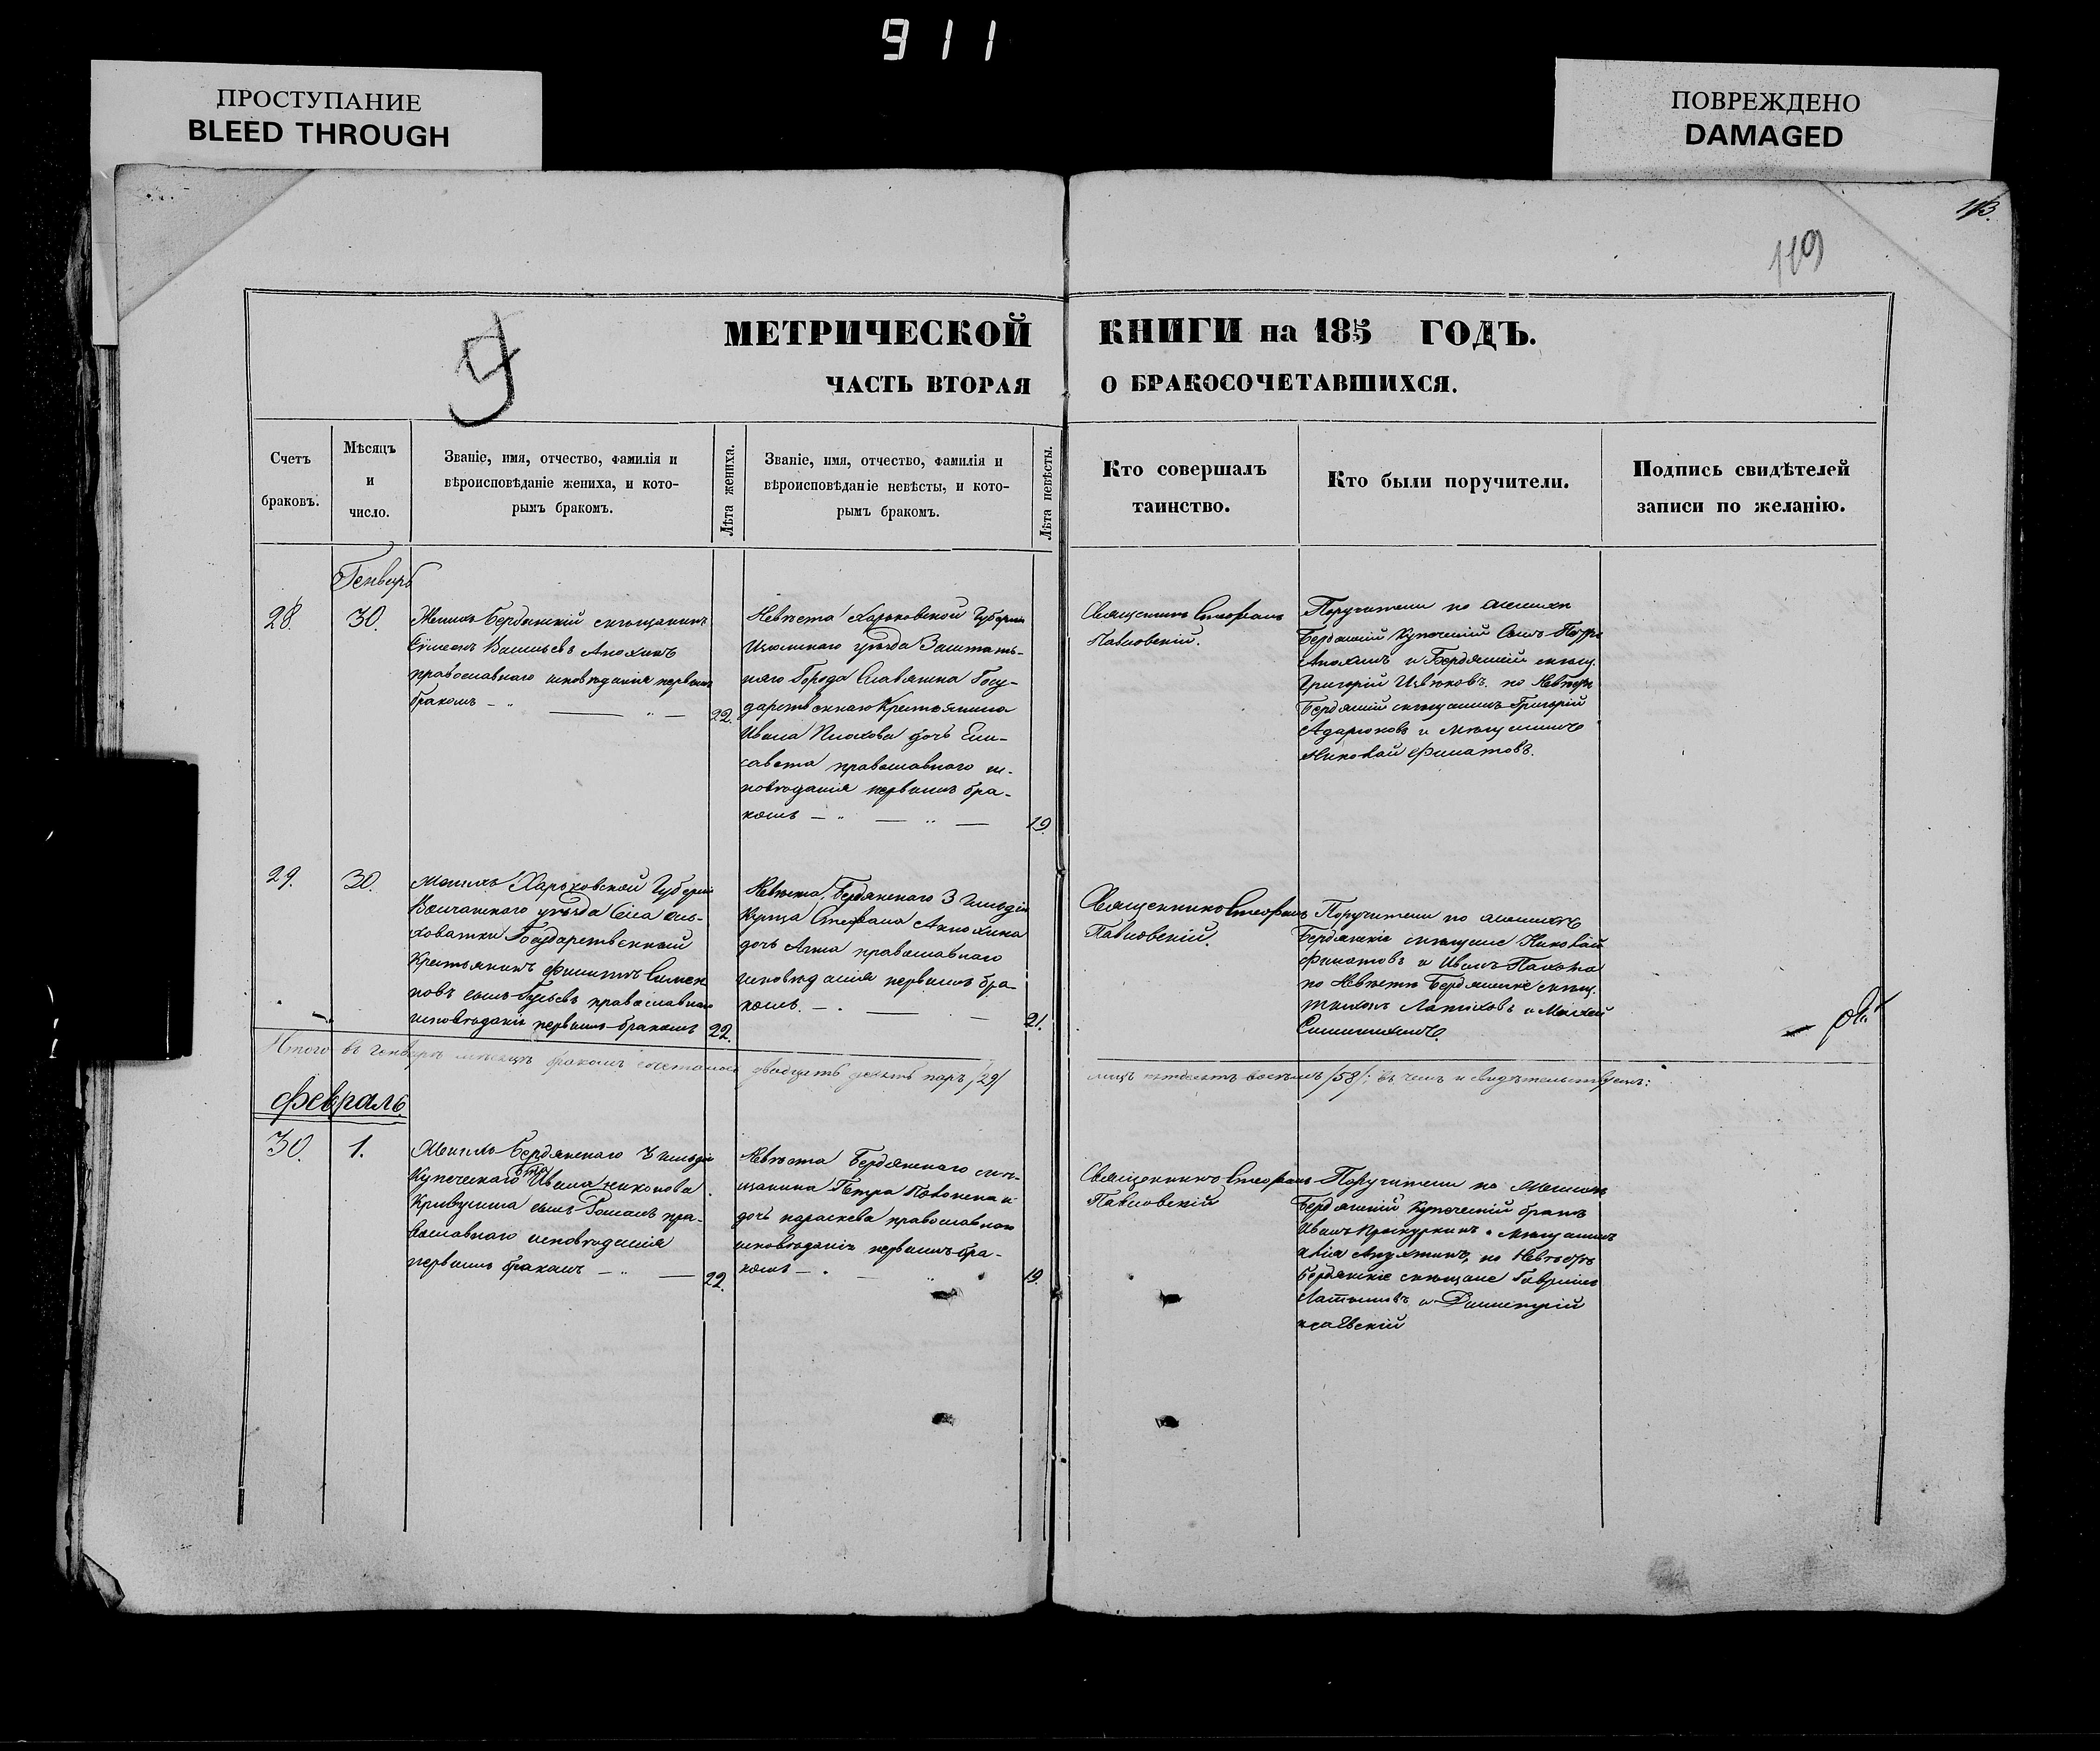 911
ПРОСТУПАНИЕ
BLEED THROUGH
ПОВРЕЖДЕНО
DAMAGED
113.
119
МЕТРИЧЕСКОЙ КНИГИ на 185 ГОДЪ.
ЧАСТЬ ВТОРАЯ О БРАКОСОЧЕТАВШИХСЯ.
Счетъ
браковъ.
Мѣсяцъ
и
число.
Званіе, имя, отчество, фамилія и
вѣроисповѣданіе жениха, и кото-
рымъ бракомъ.
Лѣта жениха.
Званіе, имя, отчество, фамилія и
вѣроисповѣданіе невѣсты, и кото-
рымъ бракомъ.
Лѣта невѣсты.
Кто совершалъ
таинство.
Кто были поручители.
Подпись свидѣтелей
записи по желанію.
Генварь
28.
30.
Женихъ Бердянскій мѣщанинъ
Васильевъ Анохинъ
православнаго исповѣданія первымъ
бракомъ
22.
Невѣста Харьковской Губерніи
Изюмскаго уѣзда Заштат-
наго Города Славянска Госу-
дарственнаго Крестьянина
Ивана дочь Ели-
савета православнаго ис-
повѣданія первымъ бра-
комъ
19.
Священникъ Стефанъ
Павловскій.
Поручители по женихѣ
Бердянскій Купеческій Сынъ
Анохинъ и Бердянскій мѣщ.
Григорій по Невѣстѣ
Бердянскій мѣщанинъ Григорій
и мѣщанинъ
Николай Филатовъ.
29.
30.
Женихъ Харьковской Губерніи
Волчанскаго уѣзда Села Оль-
ховатки Государственный
Крестьянинъ Филиппъ Симео-
новъ сынъ Гусевъ православнаго
исповѣданія первымъ бракомъ
22.
Невѣста Бердянскаго 3 гильдіи
Купца Стефана Анохина
дочь Анна православнаго
исповѣданія первымъ бра-
комъ.
21.
Священникъ Стефанъ
Павловскій.
Поручители по женихѣ
Бердянскіе мѣщане Николай
Филатовъ и Иванъ
по Невѣстѣ Бердянскіе мѣщ.
Итого въ Генварѣ мѣсяцѣ бракомъ двадцать девять паръ /29/
лицъ пятдесятъ восемь /58/; въ чемъ и свидѣтельствуемъ:
Февраль
30.
1.
Женихъ Бердянскаго 3 гильдіи
Купеческаго Ивана Никонова
сынъ Романъ пра-
вославнаго исповѣданія
первымъ бракомъ
22.
Невѣста Бердянскаго мѣ-
щанина Петра
дочь Параскева православнаго
исповѣданія первымъ бра-
комъ
19.
Священникъ Стефанъ
Павловскій
Поручители по Женихѣ
Бердянскій купеческій братъ
Иванъ и Мѣщанинъ
по Невѣстѣ
Бердянскіе мѣщане Гавріилъ
и Димитрій